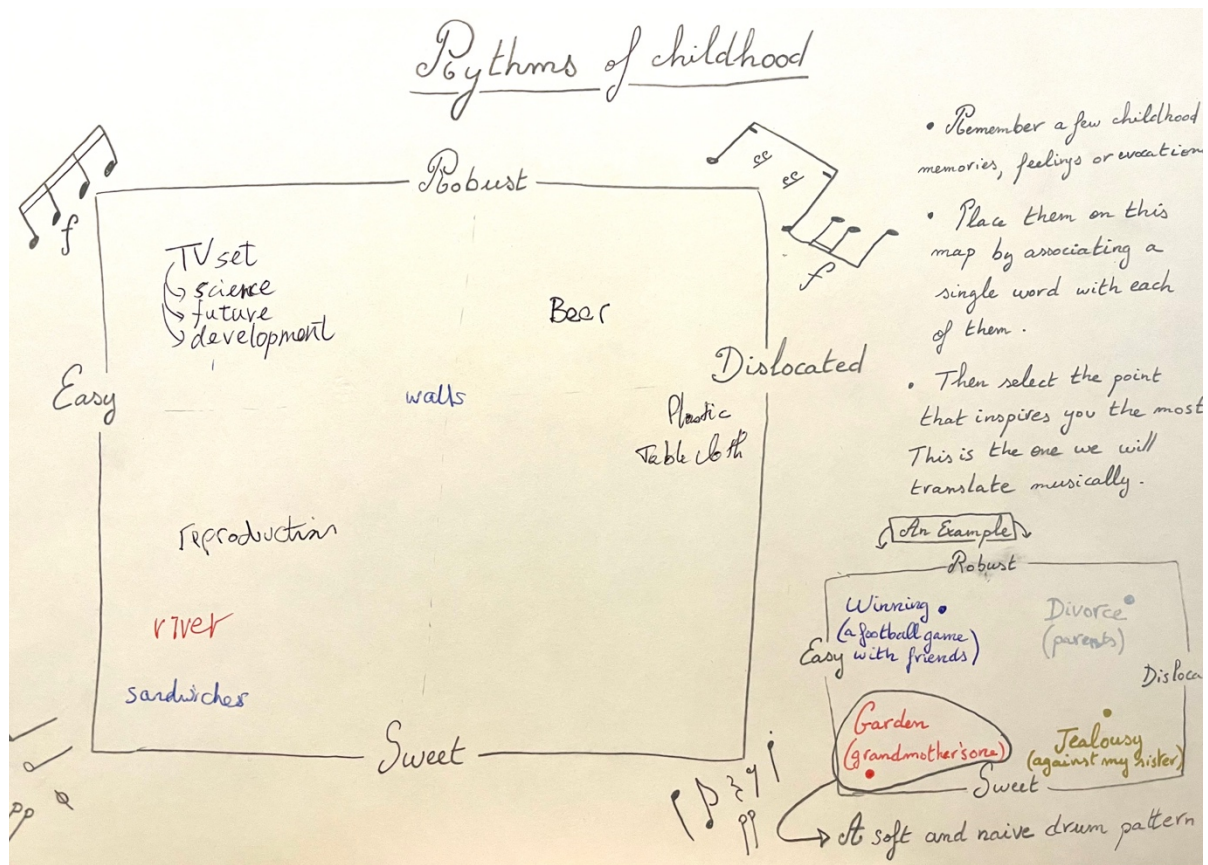 Rythms of childhood
Robust
f
f
TV set
science
future
development
Beer
Easy
Dislocated
walls
Plastic
Table cloth
reproduction
river
sandwiches
Sweet
pp
pp
• Remember a few childhood
memories, feelings or evocation
• Place them on this
map by associating a
single word with each
of them.
• Then select the point
that inspires you the most
This is the one we will
translate musically.
An Example
Robust
Winning
(a football game
with friends)
Divorce
(parents)
Easy
Disloca
Garden
(grandmother's one)
Jealousy
(against my sister)
Sweet
A soft and naive drum pattern